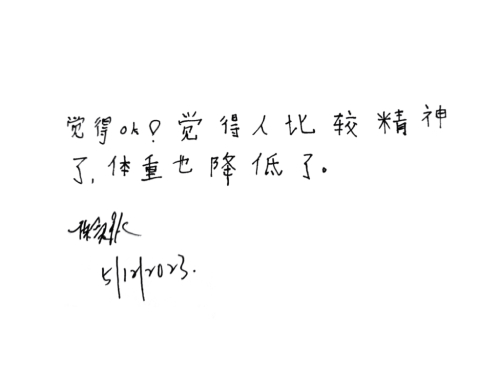 觉得ok！觉得人比较精神
了，体重也降低了。
5/12/2023.